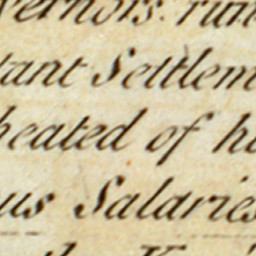 vernors. run
tant Settlem
heated of hi
us Salaries